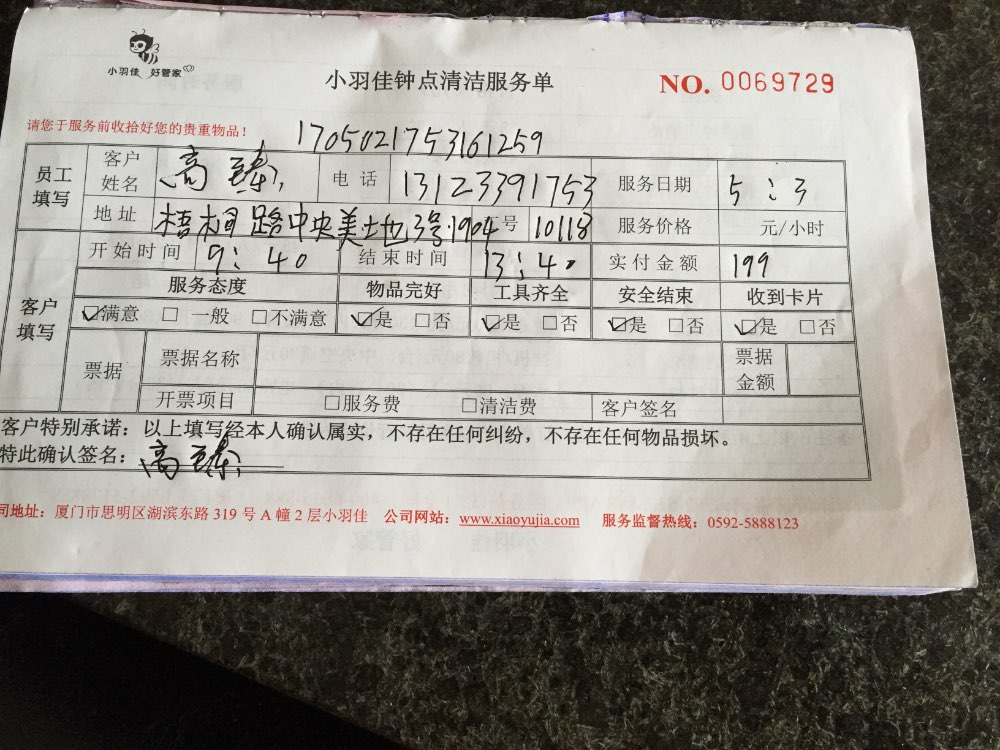 小羽佳 好管家
小羽佳钟点清洁服务单
NO. 0069729
请您于服务前收拾好您的贵重物品!
1705021753161259
员工填写 客户姓名 高臻 电话 13123391753 服务日期 5:3
地址 梧桐路中央美地3号1904 号 10118 服务价格 元/小时
客户填写 开始时间 9:40 结束时间 13:40 实付金额 199
服务态度 物品完好 工具齐全 安全结束 收到卡片
☑满意 □一般 □不满意 ☑是 □否 ☑是 □否 ☑是 □否 ☑是 □否
票据 票据名称 票据金额
开票项目 □服务费 □清洁费 客户签名
客户特别承诺:以上填写经本人确认属实,不存在任何纠纷,不存在任何物品损坏。
特此确认签名:高臻
司地址:厦门市思明区湖滨东路 319 号 A 幢 2 层小羽佳 公司网站:www.xiaoyujia.com 服务监督热线:0592-5888123